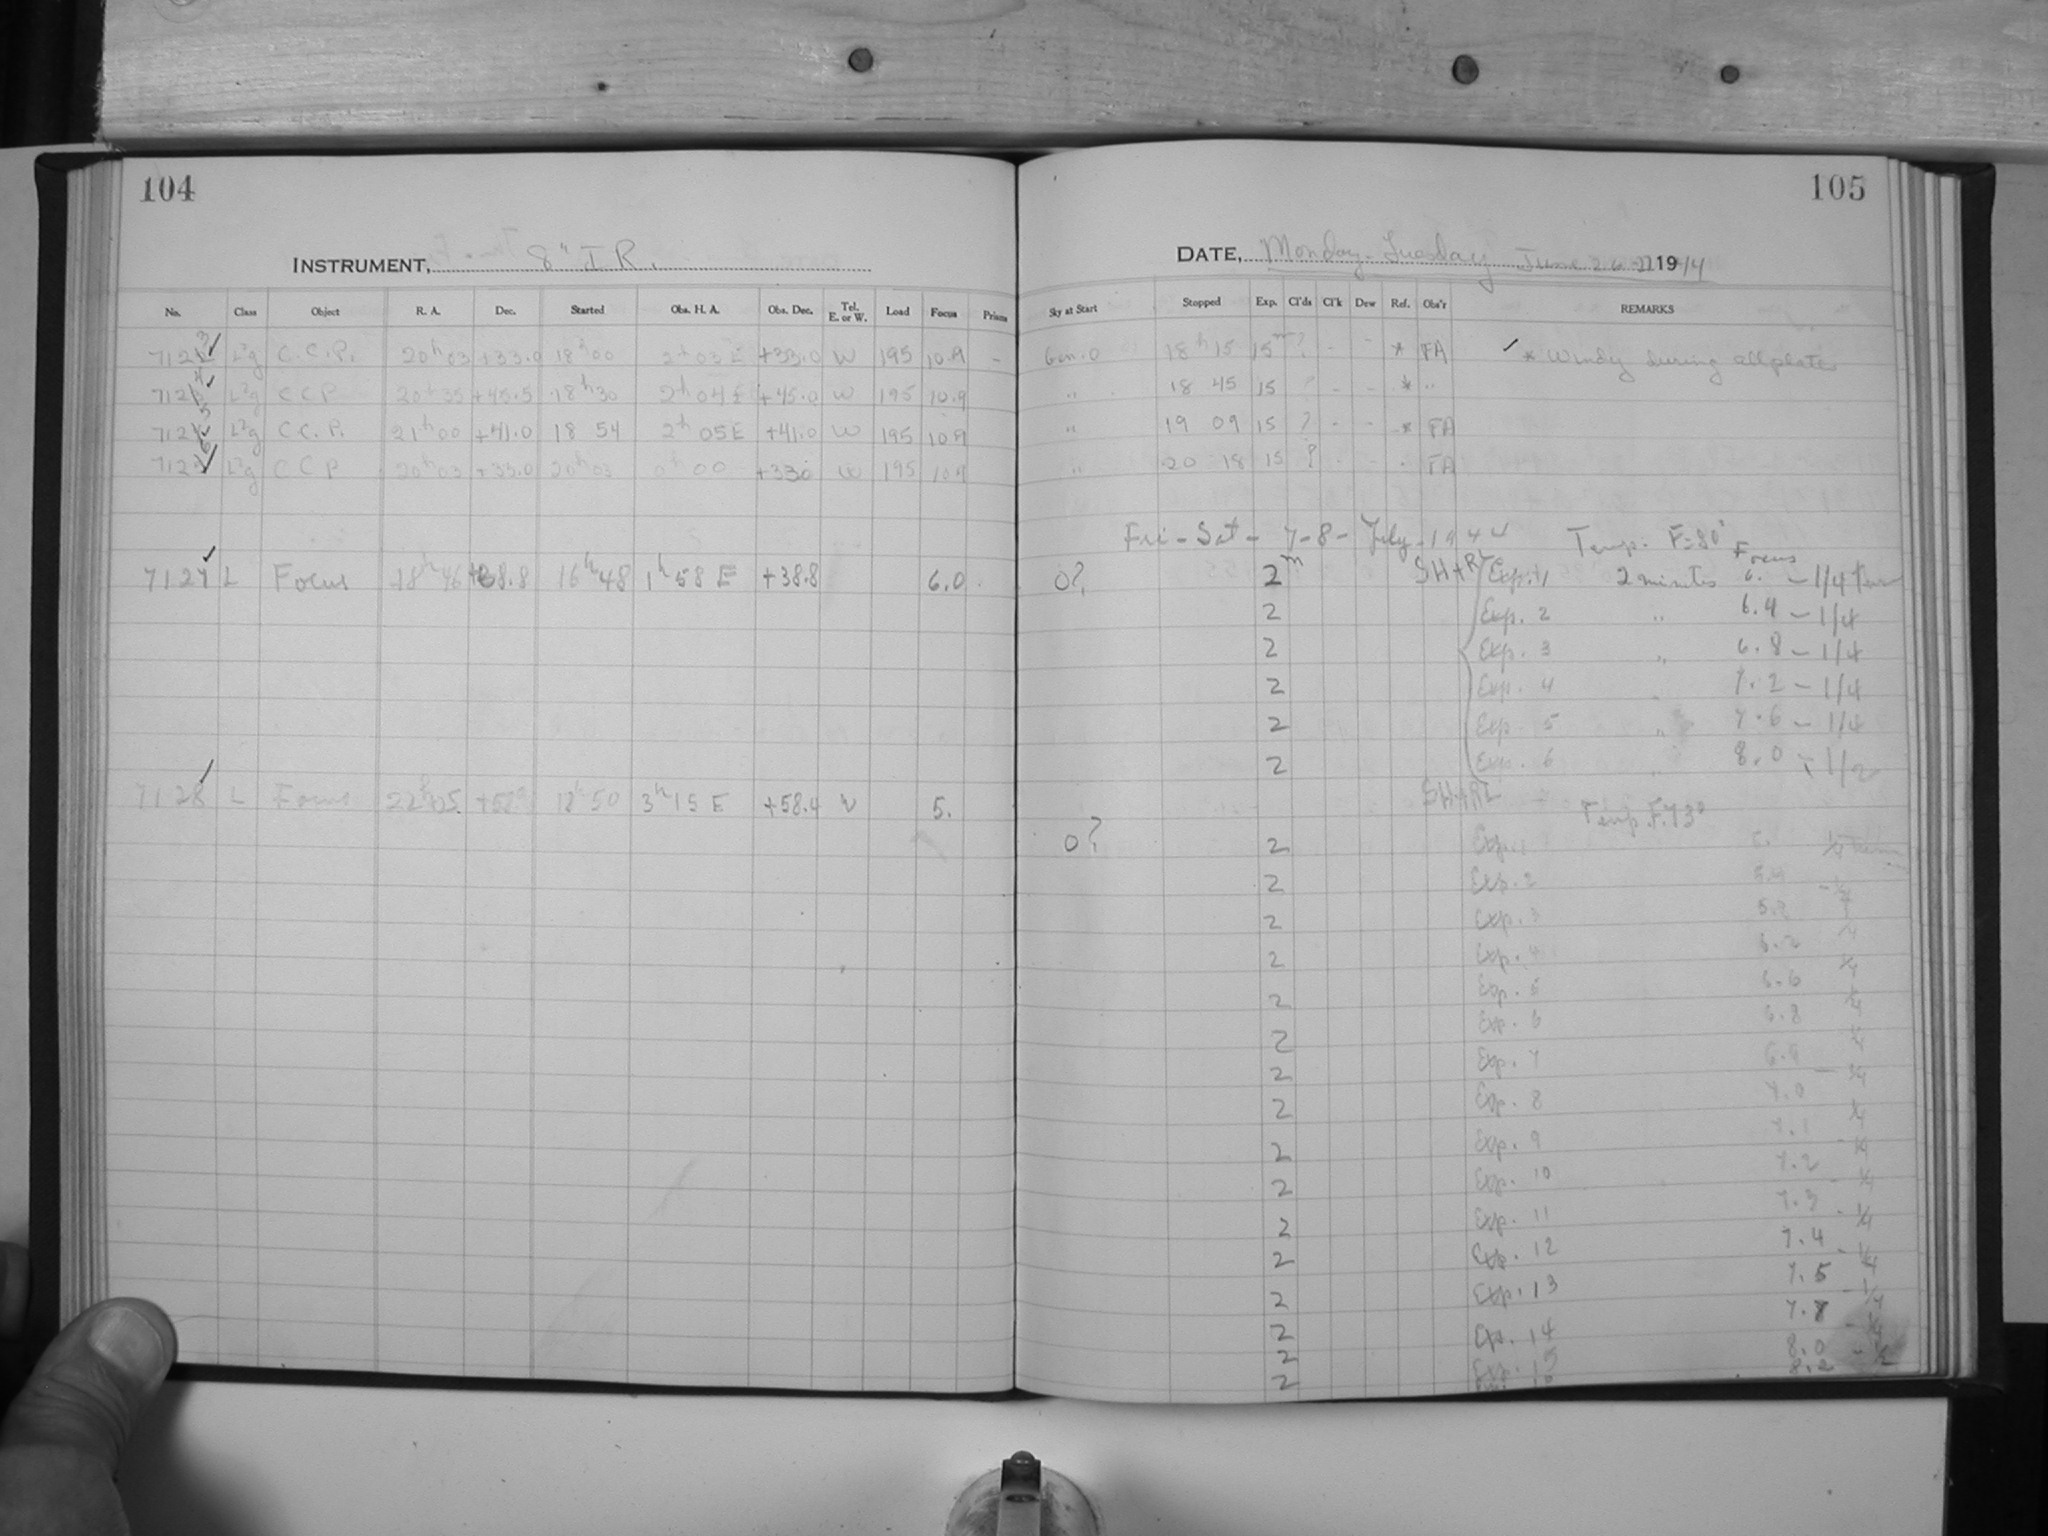 104
INSTRUMENT, 8" I R.
No. Class Object R. A. Dec. Started Obs. H. A. Obs. Dec. Tel. E. or W. Load Focus Prisms
7123 L²g C. C. P. 20h03 +33.0 18h00 2h03 E +33.0 W 195 10.9 -
7124 L²g C C P 20h35 +45.5 18h30 2h04 E +45.0 W 195 10.9
7125 L²g C C. P. 21h00 +41.0 18 54 2h05 E +41.0 W 195 10.9
7126 L²g C C P 20h03 +33.0 20h03 0h00 +33.0 W 195 10.9
7127 L Focus 18h46 +38.8 16h48 1h58 E +38.8 6.0
7128 L Focus 22h05 18h50 3h15 E +58.4 W 5.
105
DATE, Monday-Tuesday June 26-27 1944
Sky at Start Stopped Exp. Cl'ds Cl'k Dew Ref. Obs'r REMARKS
18h15 15m ? - - * FA ✓ * Windy during all plates
" 18 45 15 ? - - * "
" 19 09 15 ? - - * FA
" 20 18 15 ? - - - FA
Fri-Sat- 7-8- July-1944 Temp. F=80° Focus
0? 2m Exp. 1 2 minutes 6. - 1/4 turn
2 Exp. 2 " 6.4 - 1/4
2 Exp. 3 " 6.8 - 1/4
2 Exp. 4 " 7.2 - 1/4
2 Exp. 5 " 7.6 - 1/4
2 Exp. 6 " 8.0 - 1/2
Temp. F. 73°
0? 2 Exp. 1 5. 1/4 turn
2 Exp. 2 - 1/4
2 Exp. 3 1/4
2 Exp. 4 6.2 1/4
2 Exp. 5 6.6 1/4
2 Exp. 6 6.8 1/4
2 Exp. 7 - 1/4
2 Exp. 8 7.0 1/4
2 Exp. 9 7.1 1/4
2 Exp. 10 7.2 - 1/4
2 Exp. 11 7.3 - 1/4
2 Exp. 12 7.4 - 1/4
2 Exp. 13 7.5 - 1/4
2 Exp. 14 7.8 - 1/4
2 Exp. 15 8.0 - 1/2
2 8.2